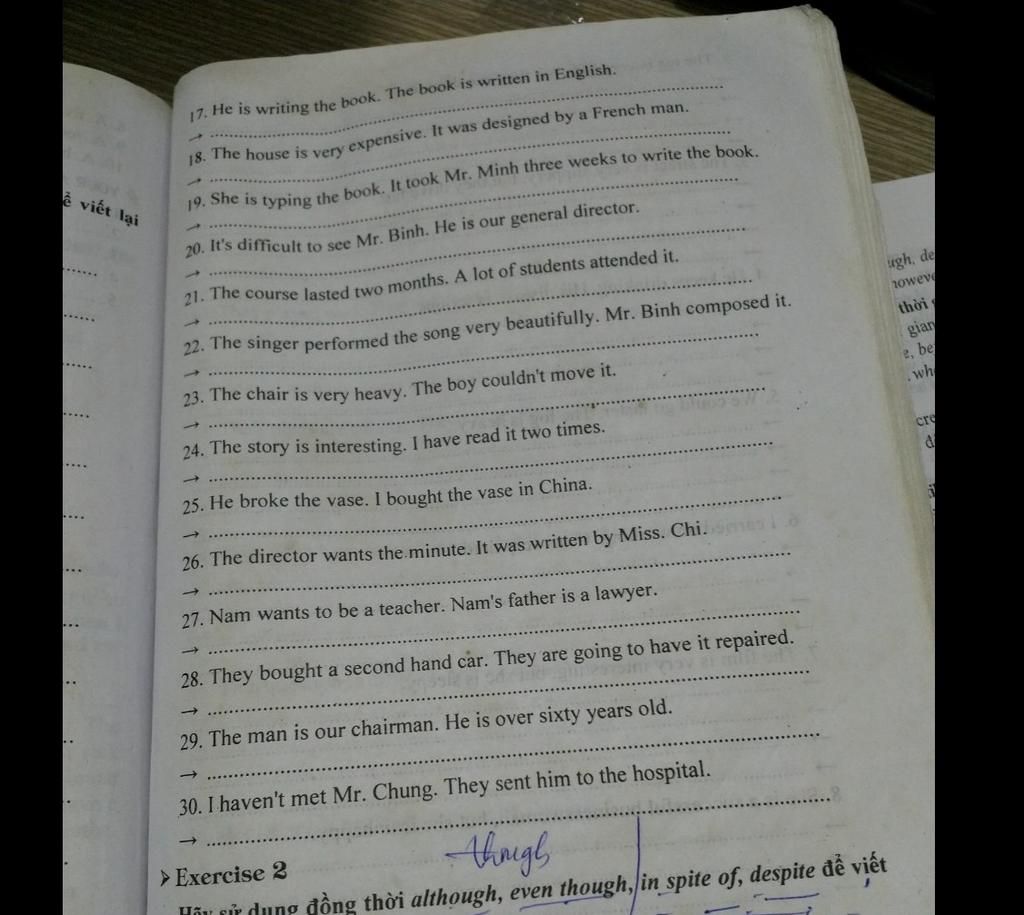 17. He is writing the book. The book is written in English.
→ ..........
18. The house is very expensive. It was designed by a French man.
→ ..........
19. She is typing the book. It took Mr. Minh three weeks to write the book.
→ ..........
20. It's difficult to see Mr. Binh. He is our general director.
→ ..........
21. The course lasted two months. A lot of students attended it.
→ ..........
22. The singer performed the song very beautifully. Mr. Binh composed it.
→ ..........
23. The chair is very heavy. The boy couldn't move it.
→ ..........
24. The story is interesting. I have read it two times.
→ ..........
25. He broke the vase. I bought the vase in China.
→ ..........
26. The director wants the minute. It was written by Miss. Chi.
→ ..........
27. Nam wants to be a teacher. Nam's father is a lawyer.
→ ..........
28. They bought a second hand car. They are going to have it repaired.
→ ..........
29. The man is our chairman. He is over sixty years old.
→ ..........
30. I haven't met Mr. Chung. They sent him to the hospital.
→ ..........
though
➢ Exercise 2
Hãy sử dụng đồng thời although, even though, in spite of, despite để viết
viết lại
thời